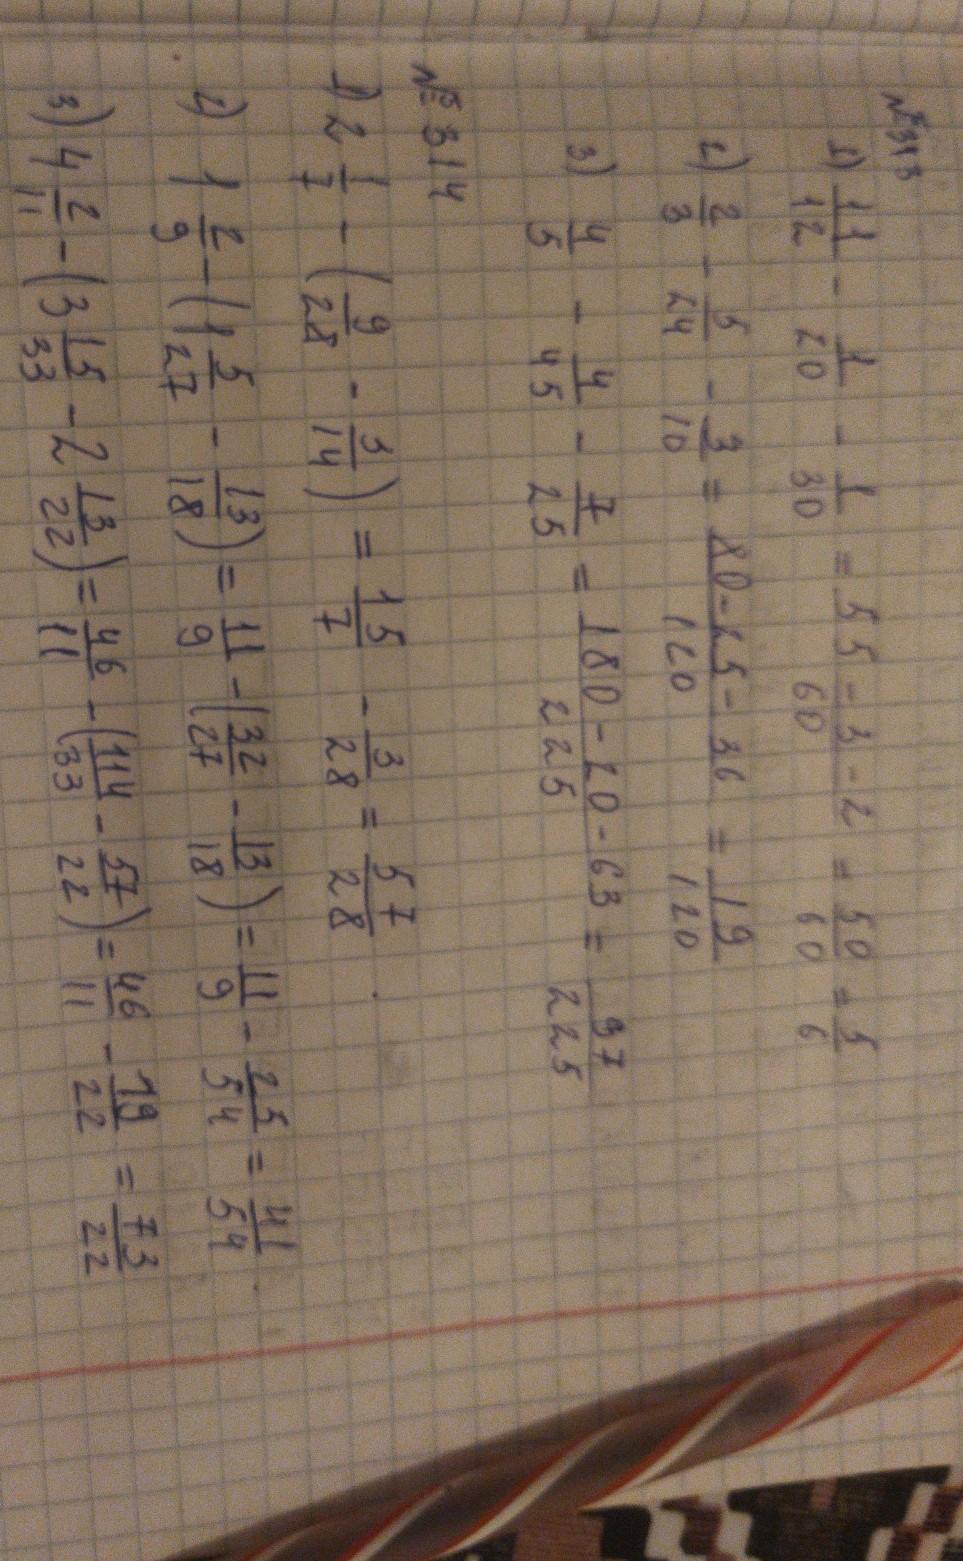 № 313
1) 11/12 - 1/20 - 1/30 = 55-3-2/60 = 50/60 = 5/6
2) 2/3 - 5/24 - 3/10 = 80-25-36/120 = 19/120
3) 4/5 - 4/45 - 7/25 = 180-20-63/225 = 97/225
№ 314
1) 2 1/7 - (9/28 - 3/14) = 15/7 - 3/28 = 57/28
2) 1 2/9 - (1 5/27 - 13/18) = 11/9 - (32/27 - 13/18) = 11/9 - 25/54 = 41/54
3) 4 2/11 - (3 15/33 - 2 13/22) = 46/11 - (114/33 - 57/22) = 46/11 - 19/22 = 73/22